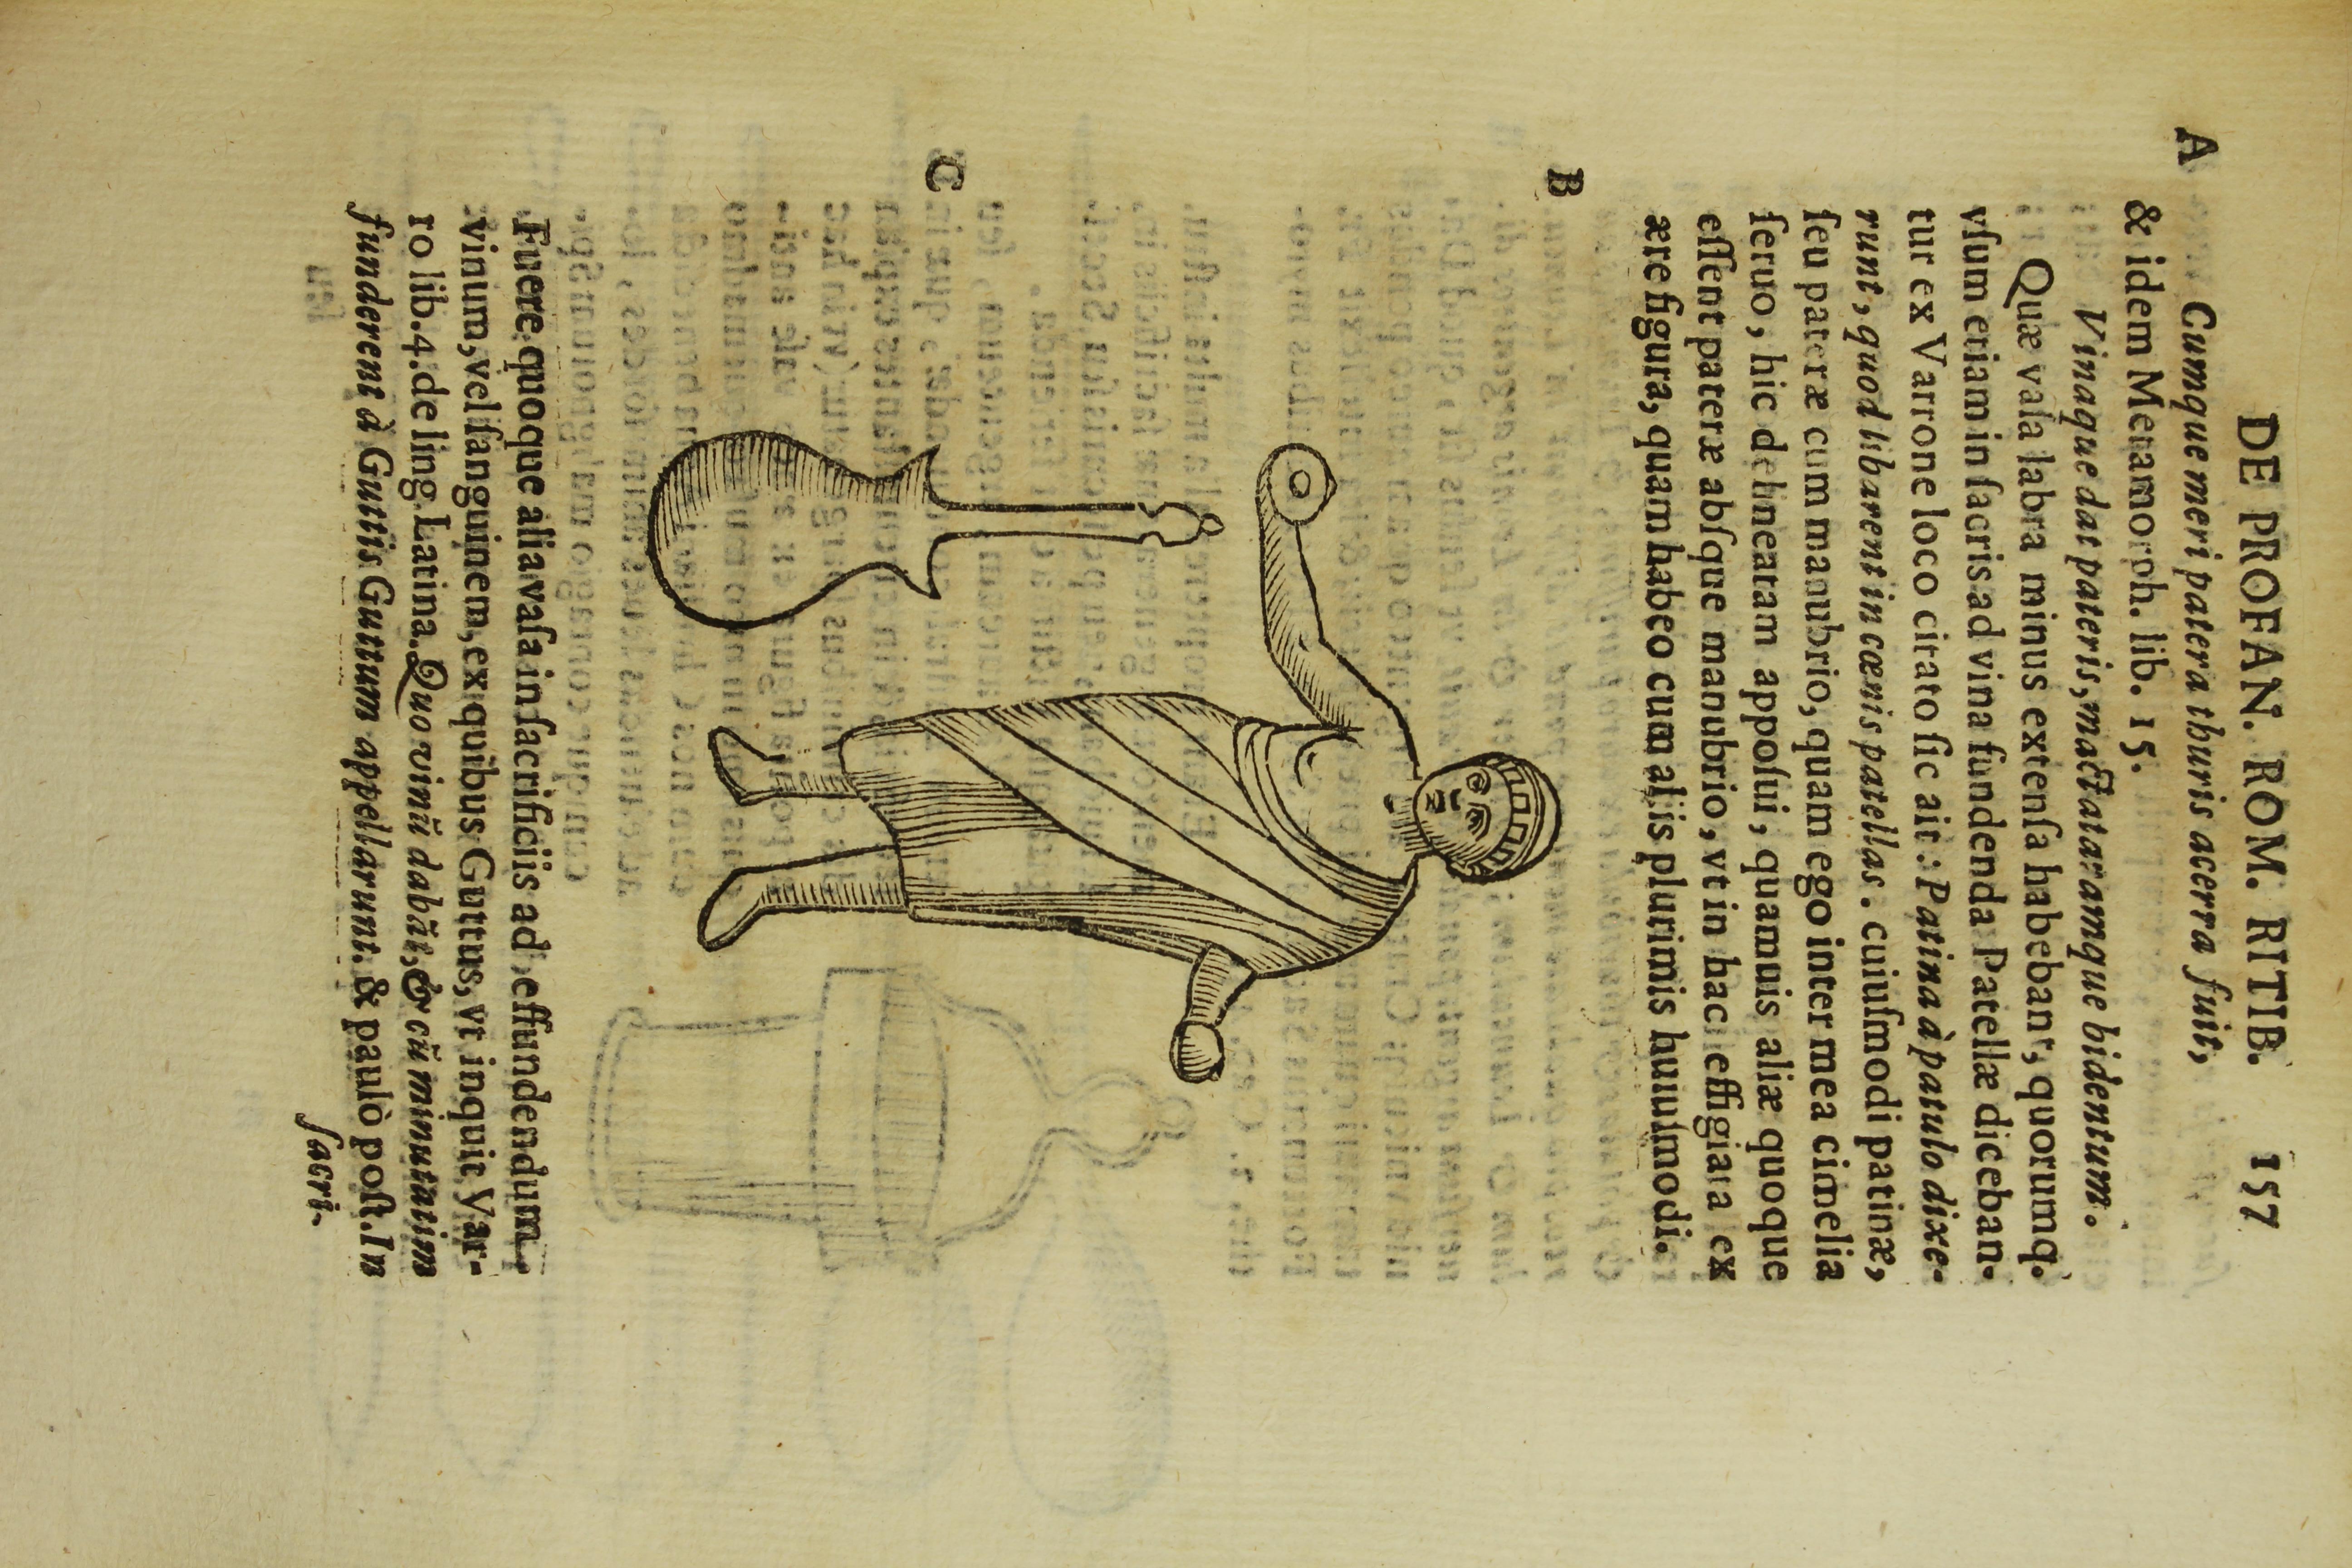 DE PROFAN. ROM. RITIB. 157
A Cumque meri patera thuris acerra fuit,
& idem Metamorph. lib. 15.
Vinaque dat pateris, mactatarumque bidentum.
Quæ vasa labra minus extensa habebant, quorumq.
vſum etiam in ſacris ad vina fundenda Patellæ diceban-
tur ex Varrone loco citato ſic ait: Patina à patulo dixe-
runt, quod libarent in cœnis patellas. cuiuſmodi patinæ,
ſeu pateræ cum manubrio, quam ego inter mea cimelia
ſeruo, hic delineatam appoſui, quamuis aliæ quoque
eſſent pateræ abſque manubrio, vt in hac effigiata ex
B
ære figura, quam habeo cum aliis plurimis huiuſmodi.
C
Fuere quoque alia vaſa in ſacrificiis ad effundendum
vinum, vel ſanguinem, ex quibus Guttus, vt inquit Var-
ro lib. 4. de ling. Latina. Quo vinū dabāt, & cū minutatim
funderent à Guttis Guttum appellarunt. & paulò poſt. In
ſacri-